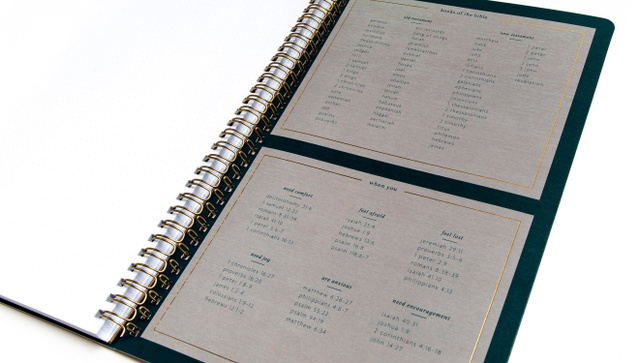 books of the bible
old testament
genesis
joshua
judges
ruth
1 samuel
2 samuel
1 kings
2 kings
1 chronicles
2 chronicles
ezra
nehemiah
esther
job
psalms
proverbs
song of songs
isaiah
jeremiah
lamentations
ezekiel
daniel
hosea
joel
amos
obadiah
jonah
micah
nahum
habakkuk
zephaniah
haggai
zechariah
malachi
new testament
matthew
mark
luke
john
acts
romans
1 corinthians
2 corinthians
galatians
ephesians
philippians
colossians
1 thessalonians
2 thessalonians
1 timothy
2 timothy
titus
philemon
hebrews
james
1 peter
2 peter
1 john
2 john
3 john
jude
revelation
when you
need comfort
deuteronomy 31:6
1 samuel 12:22
romans 8:31-38
isaiah 41:10
1 peter 5:6-7
1 corinthians 10:13
feel afraid
isaiah 35:4
joshua 1:9
hebrews 13:6
psalm 16:8
psalm 118:6-7
feel lost
jeremiah 29:11
proverbs 3:5-6
1 peter 2:9
romans 8:38-39
isaiah 41:10
philippians 4:13
need joy
1 chronicles 16:27
proverbs 10:28
james 1:2-4
colossians 1:9-12
hebrews 12:1-2
are anxious
matthew 6:26-27
philippians 4:6-7
psalm 55:22
psalm 94:19
matthew 6:34
need encouragement
isaiah 40:31
joshua 1:9
2 corinthians 4:16-18
john 14:27